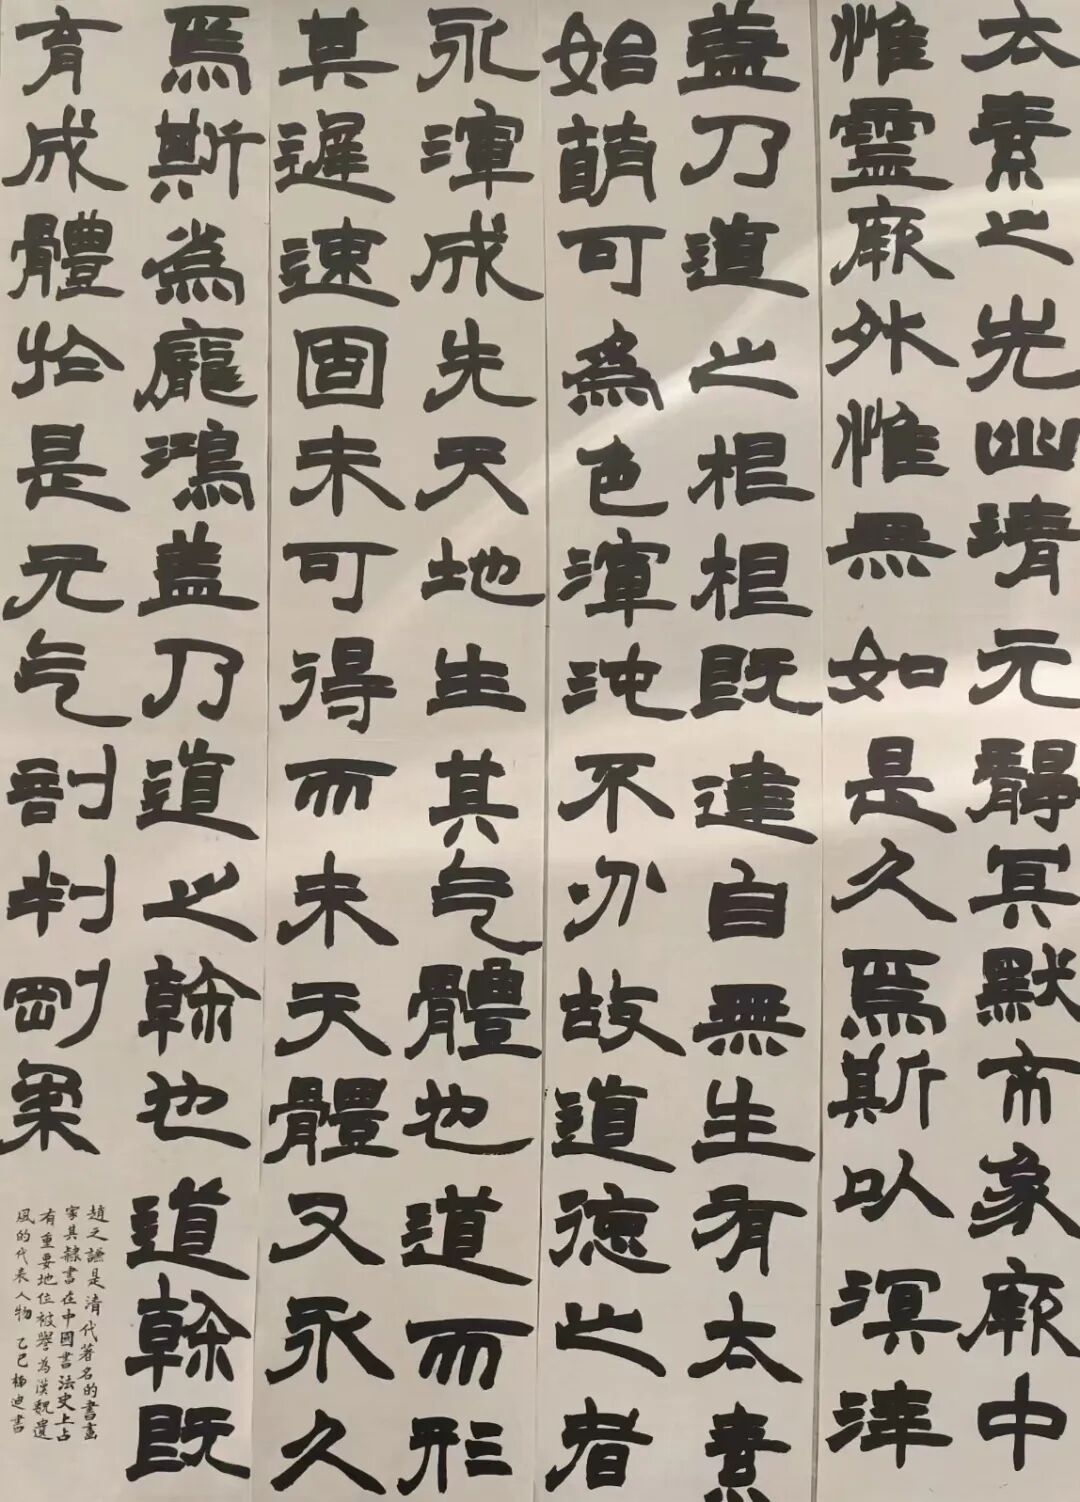 太素之先幽清元靜冥默不象厥中
惟靈厥外惟無如是久焉斯以溟涬
蓋乃道之根根既建自無生有太素
始萌可為色渾沌不分故道德之者
永渾成先天地生其气體也道而形
其遲速固未可得而未天體又永久
焉斯為龐鴻蓋乃道之幹也道幹既
育成體於是元气剖判剛柔
趙之謙是清代著名的書畫
家其隸書在中國書法史上占
有重要地位被譽為漢魏遺
風的代表人物 乙巳 迪書